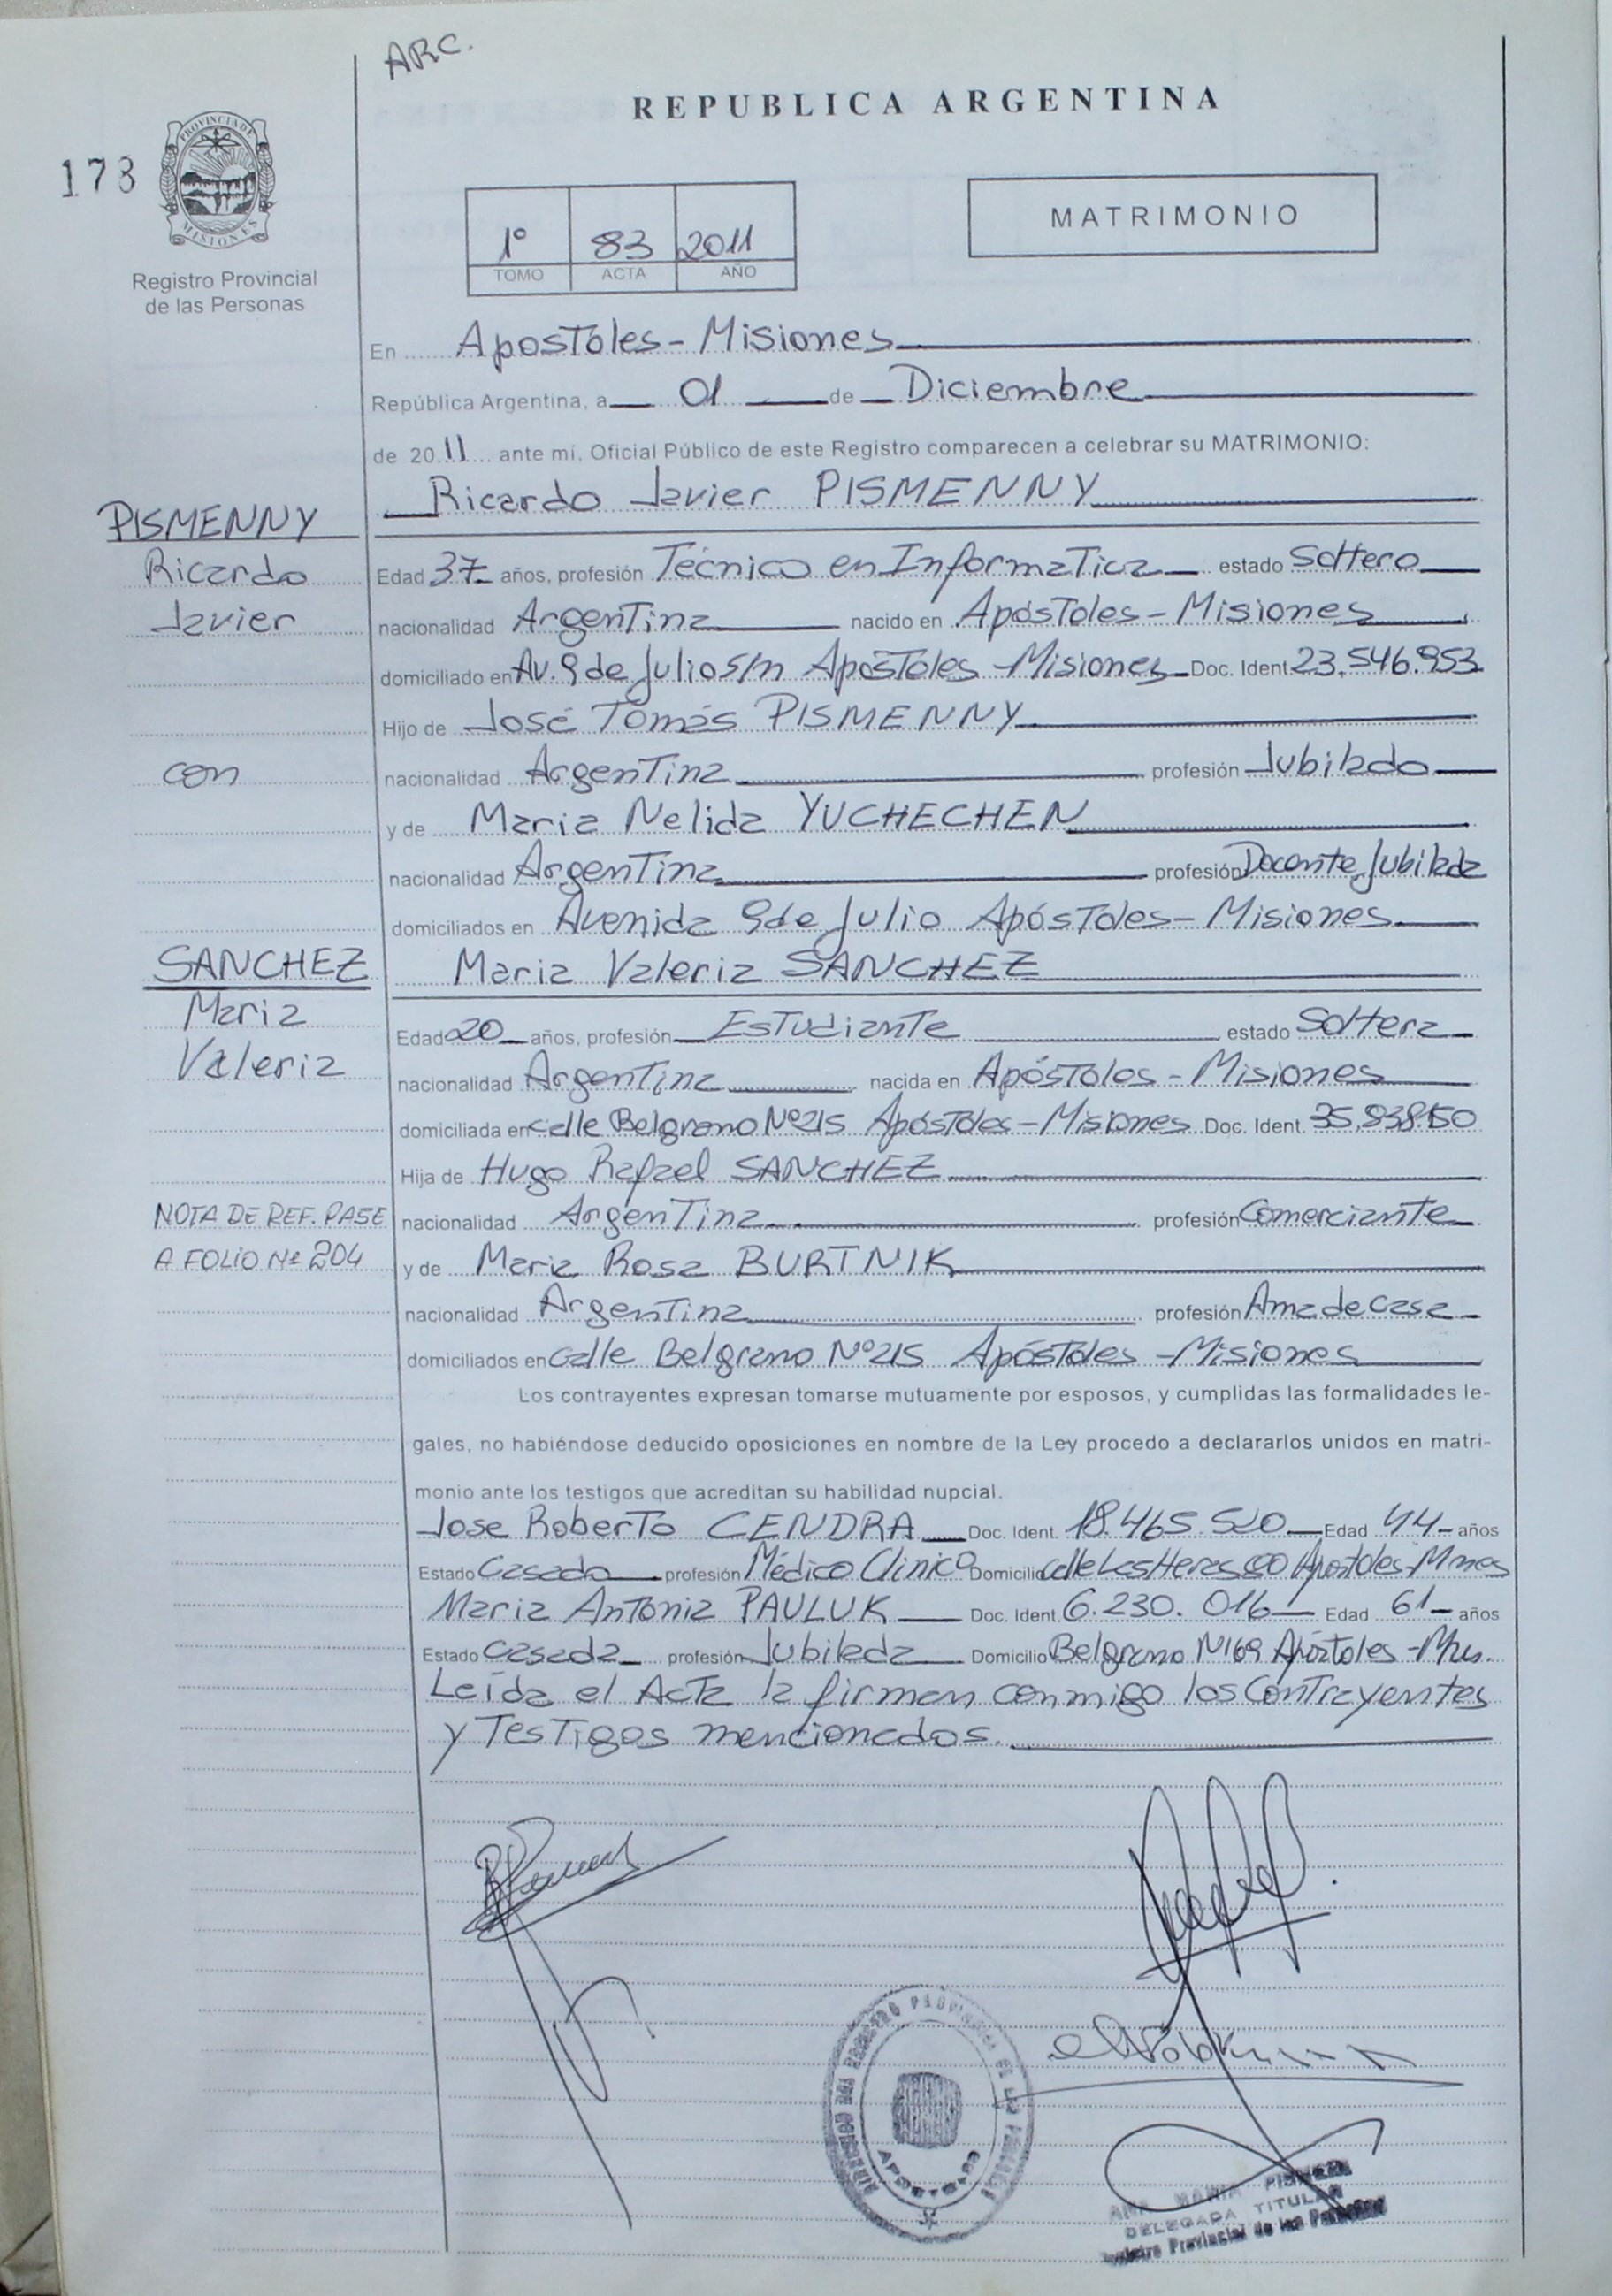 ARC.
REPUBLICA ARGENTINA
173
PROVINCIA DE
MISIONES
Registro Provincial
de las Personas
1º 83 2011
TOMO ACTA AÑO
MATRIMONIO
En Apostoles - Misiones
República Argentina, a 01 de Diciembre
de 2011 ante mí, Oficial Público de este Registro comparecen a celebrar su MATRIMONIO:
Ricardo Javier PISMENNY
PISMENNY
Ricardo
Javier
con
SANCHEZ
Maria
Valeria
NOTA DE REF. PASE
A FOLIO Nº 204
Edad 37 años, profesión Técnico en Informatica estado Soltero
nacionalidad Argentina nacido en Apóstoles - Misiones
domiciliado en Av. 9 de Julio s/n Apóstoles - Misiones Doc. Ident. 23.546.953
Hijo de José Tomás PISMENNY
nacionalidad Argentina profesión Jubilado
y de Maria Nelida YUCHECHEN
nacionalidad Argentina profesión Docente Jubilada
domiciliados en Avenida 9 de Julio Apóstoles - Misiones
Maria Valeria SANCHEZ
Edad 20 años, profesión Estudiante estado Soltera
nacionalidad Argentina nacida en Apóstoles - Misiones
domiciliada en calle Belgrano Nº 215 Apóstoles - Misiones Doc. Ident. 35.838.150
Hija de Hugo Rafael SANCHEZ
nacionalidad Argentina profesión Comerciante
y de Maria Rosa BURTNIK
nacionalidad Argentina profesión Ama de casa
domiciliados en calle Belgrano Nº 215 Apóstoles - Misiones
Los contrayentes expresan tomarse mutuamente por esposos, y cumplidas las formalidades le-
gales, no habiéndose deducido oposiciones en nombre de la Ley procedo a declararlos unidos en matri-
monio ante los testigos que acreditan su habilidad nupcial.
Jose Roberto CENDRA Doc. Ident. 18.465.520 Edad 44 años
Estado Casado profesión Médico Clinico Domicilio calle Las Heras 80 Apostoles - Mnes
Maria Antonia PAULUK Doc. Ident. 6.230.016 Edad 61 años
Estado Casada profesión Jubilada Domicilio Belgrano Nº 169 Apóstoles - Mns.
Leída el Acta la firman conmigo los Contrayentes
y Testigos mencionados.
APOSTOLES
ANA MARIA
DELEGADA TITULAR
Registro Provincial de las Personas